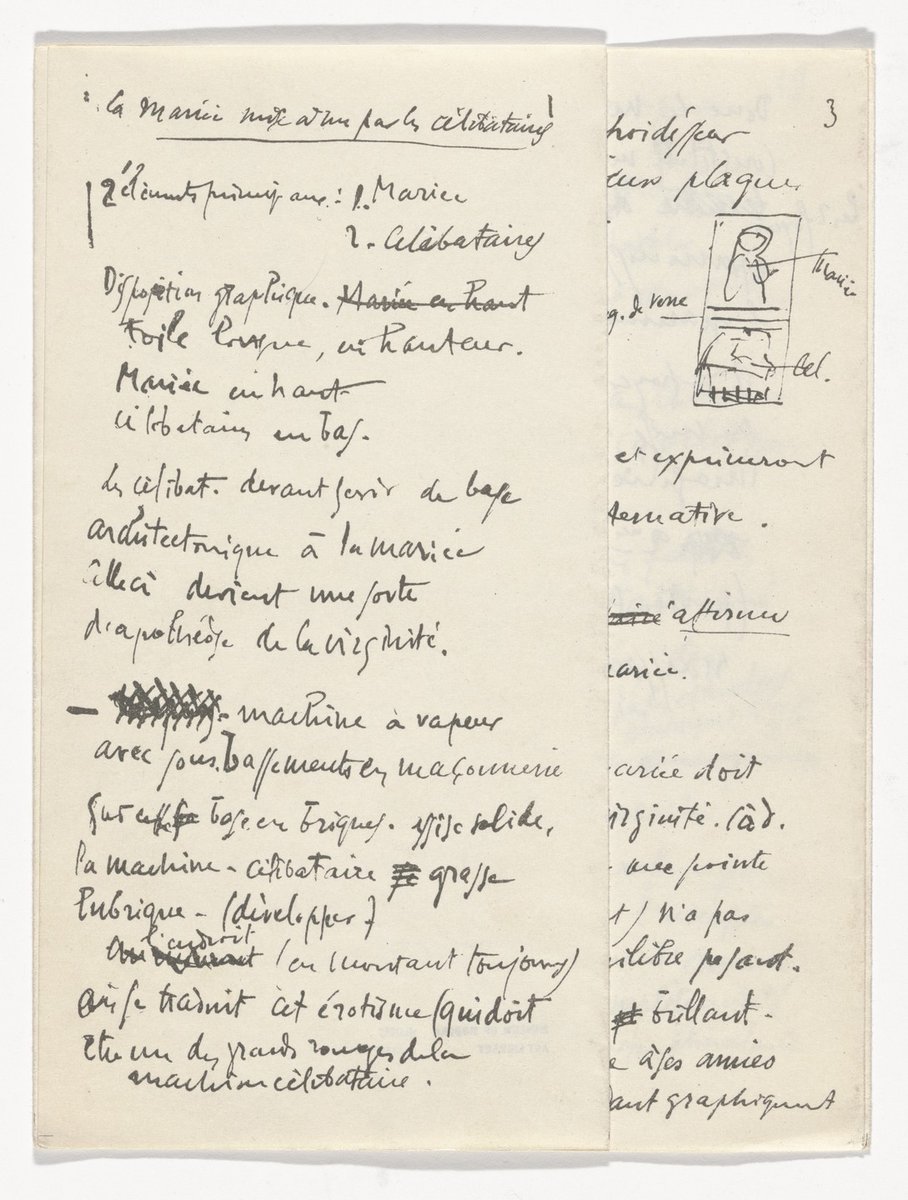 La Mariée mise à nu par les célibataires
2 éléments principaux : 1. Mariée
2. Célibataires
Disposition graphique. Mariée en haut
Toile longue, en hauteur.
Mariée en haut
célibataires en bas.
Les célibat. devant servir de base
architectonique à la mariée
celle ci devient une sorte
d'apothéose de la virginité.
— machine à vapeur
avec sous.bassements en maçonnerie
Sur cette base en briques. assise solide,
la machine-célibataire grasse
lubrique - (développer)
l'endroit (en montant toujours)
où se traduit cet érotisme (qui doit
être un des grands rouages de la
machine célibataire.
3
roidisseur
eux plaques
Mariée
g. de verre
Cel.
et exprimeront
ternative.
affirme
ariée.
ariée doit
irginité. Càd.
avec pointe
t) n'a pas
ilibre pesant.
brillant-
âges amies
ant graphiquent